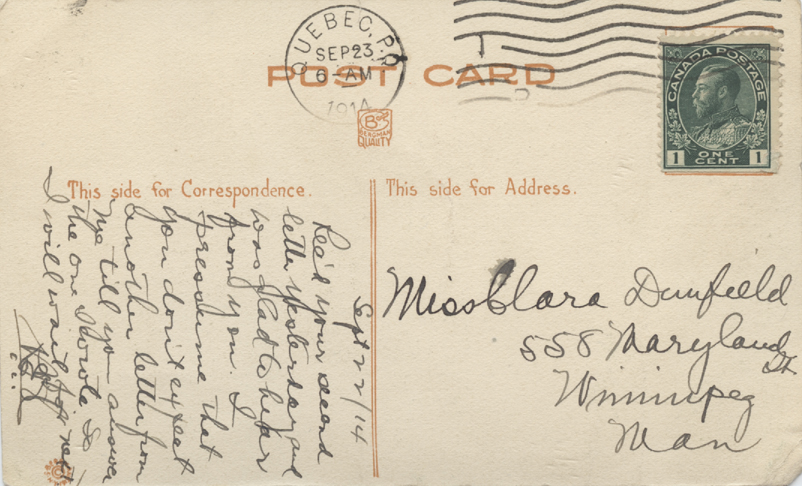 QUEBEC, P.Q.
SEP 23
6 - AM
1914
POST CARD
CANADA POSTAGE
1 ONE CENT 1
BERGMAN
QUALITY
This side for Correspondence.
This side for Address.
Sept 22/14
Rec'd your second
letter yesterday and
was glad to hear
from you. I
pressume that
you don't expect
another letter from
me till you answer
the one I wrote so
I will wait for next
Miss Clara Dunfield
558 Maryland St
Winnipeg
Man